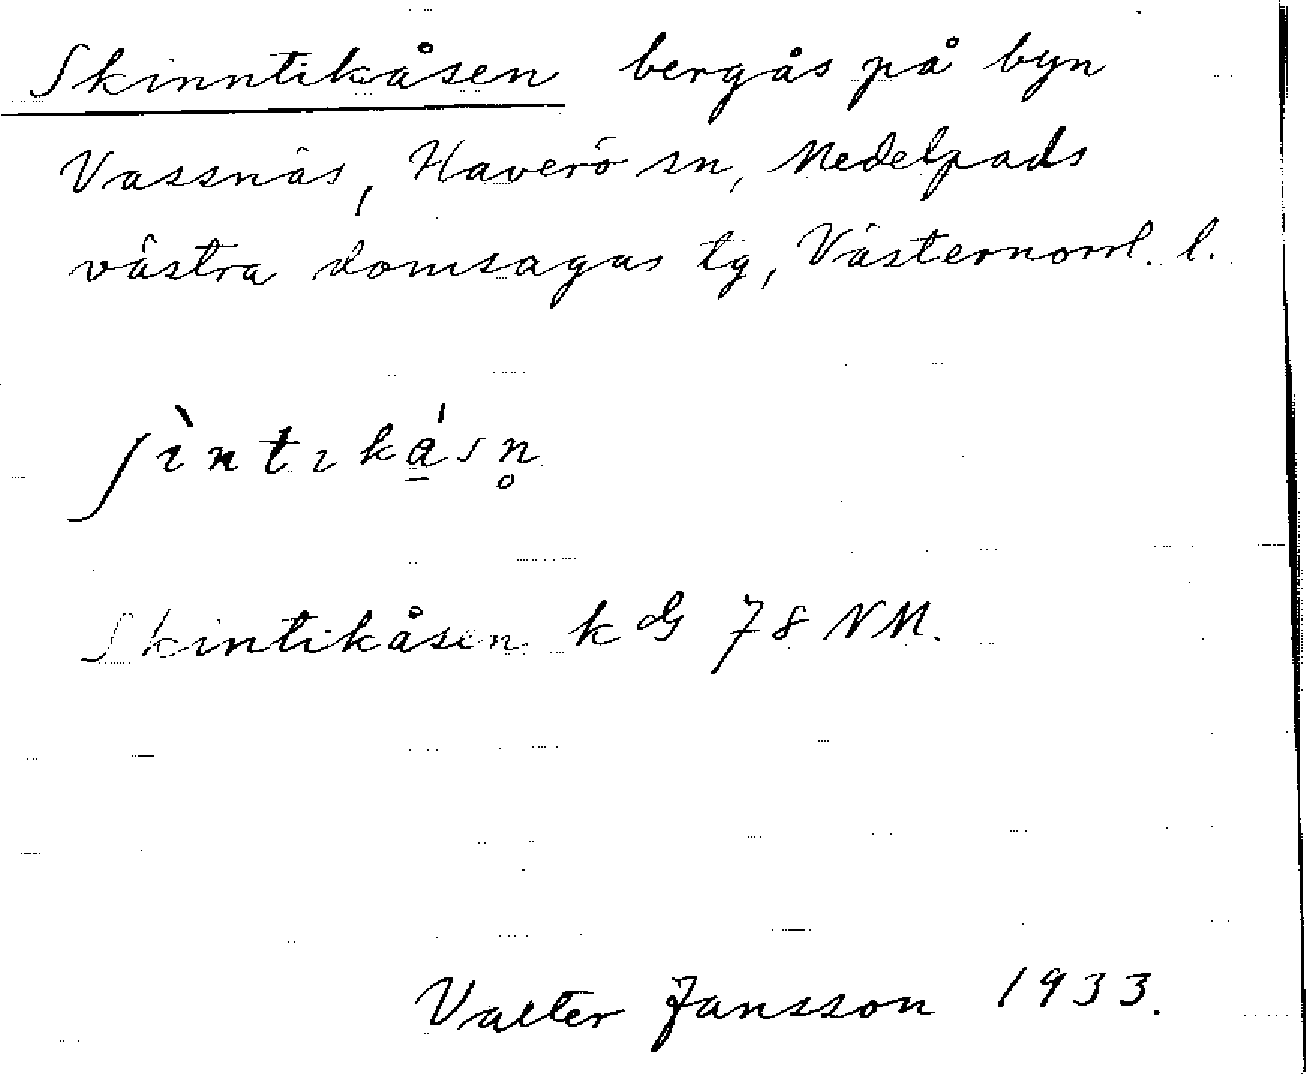 Skinntikåsen bergås på byn
Vassnäs, Haverö sn, Medelpads
västra domsagas tg, Västernorrl. l.
ʃìntɩkást n̥
Skintikåsen k dG 78 NM.
Valter Jansson 1933.